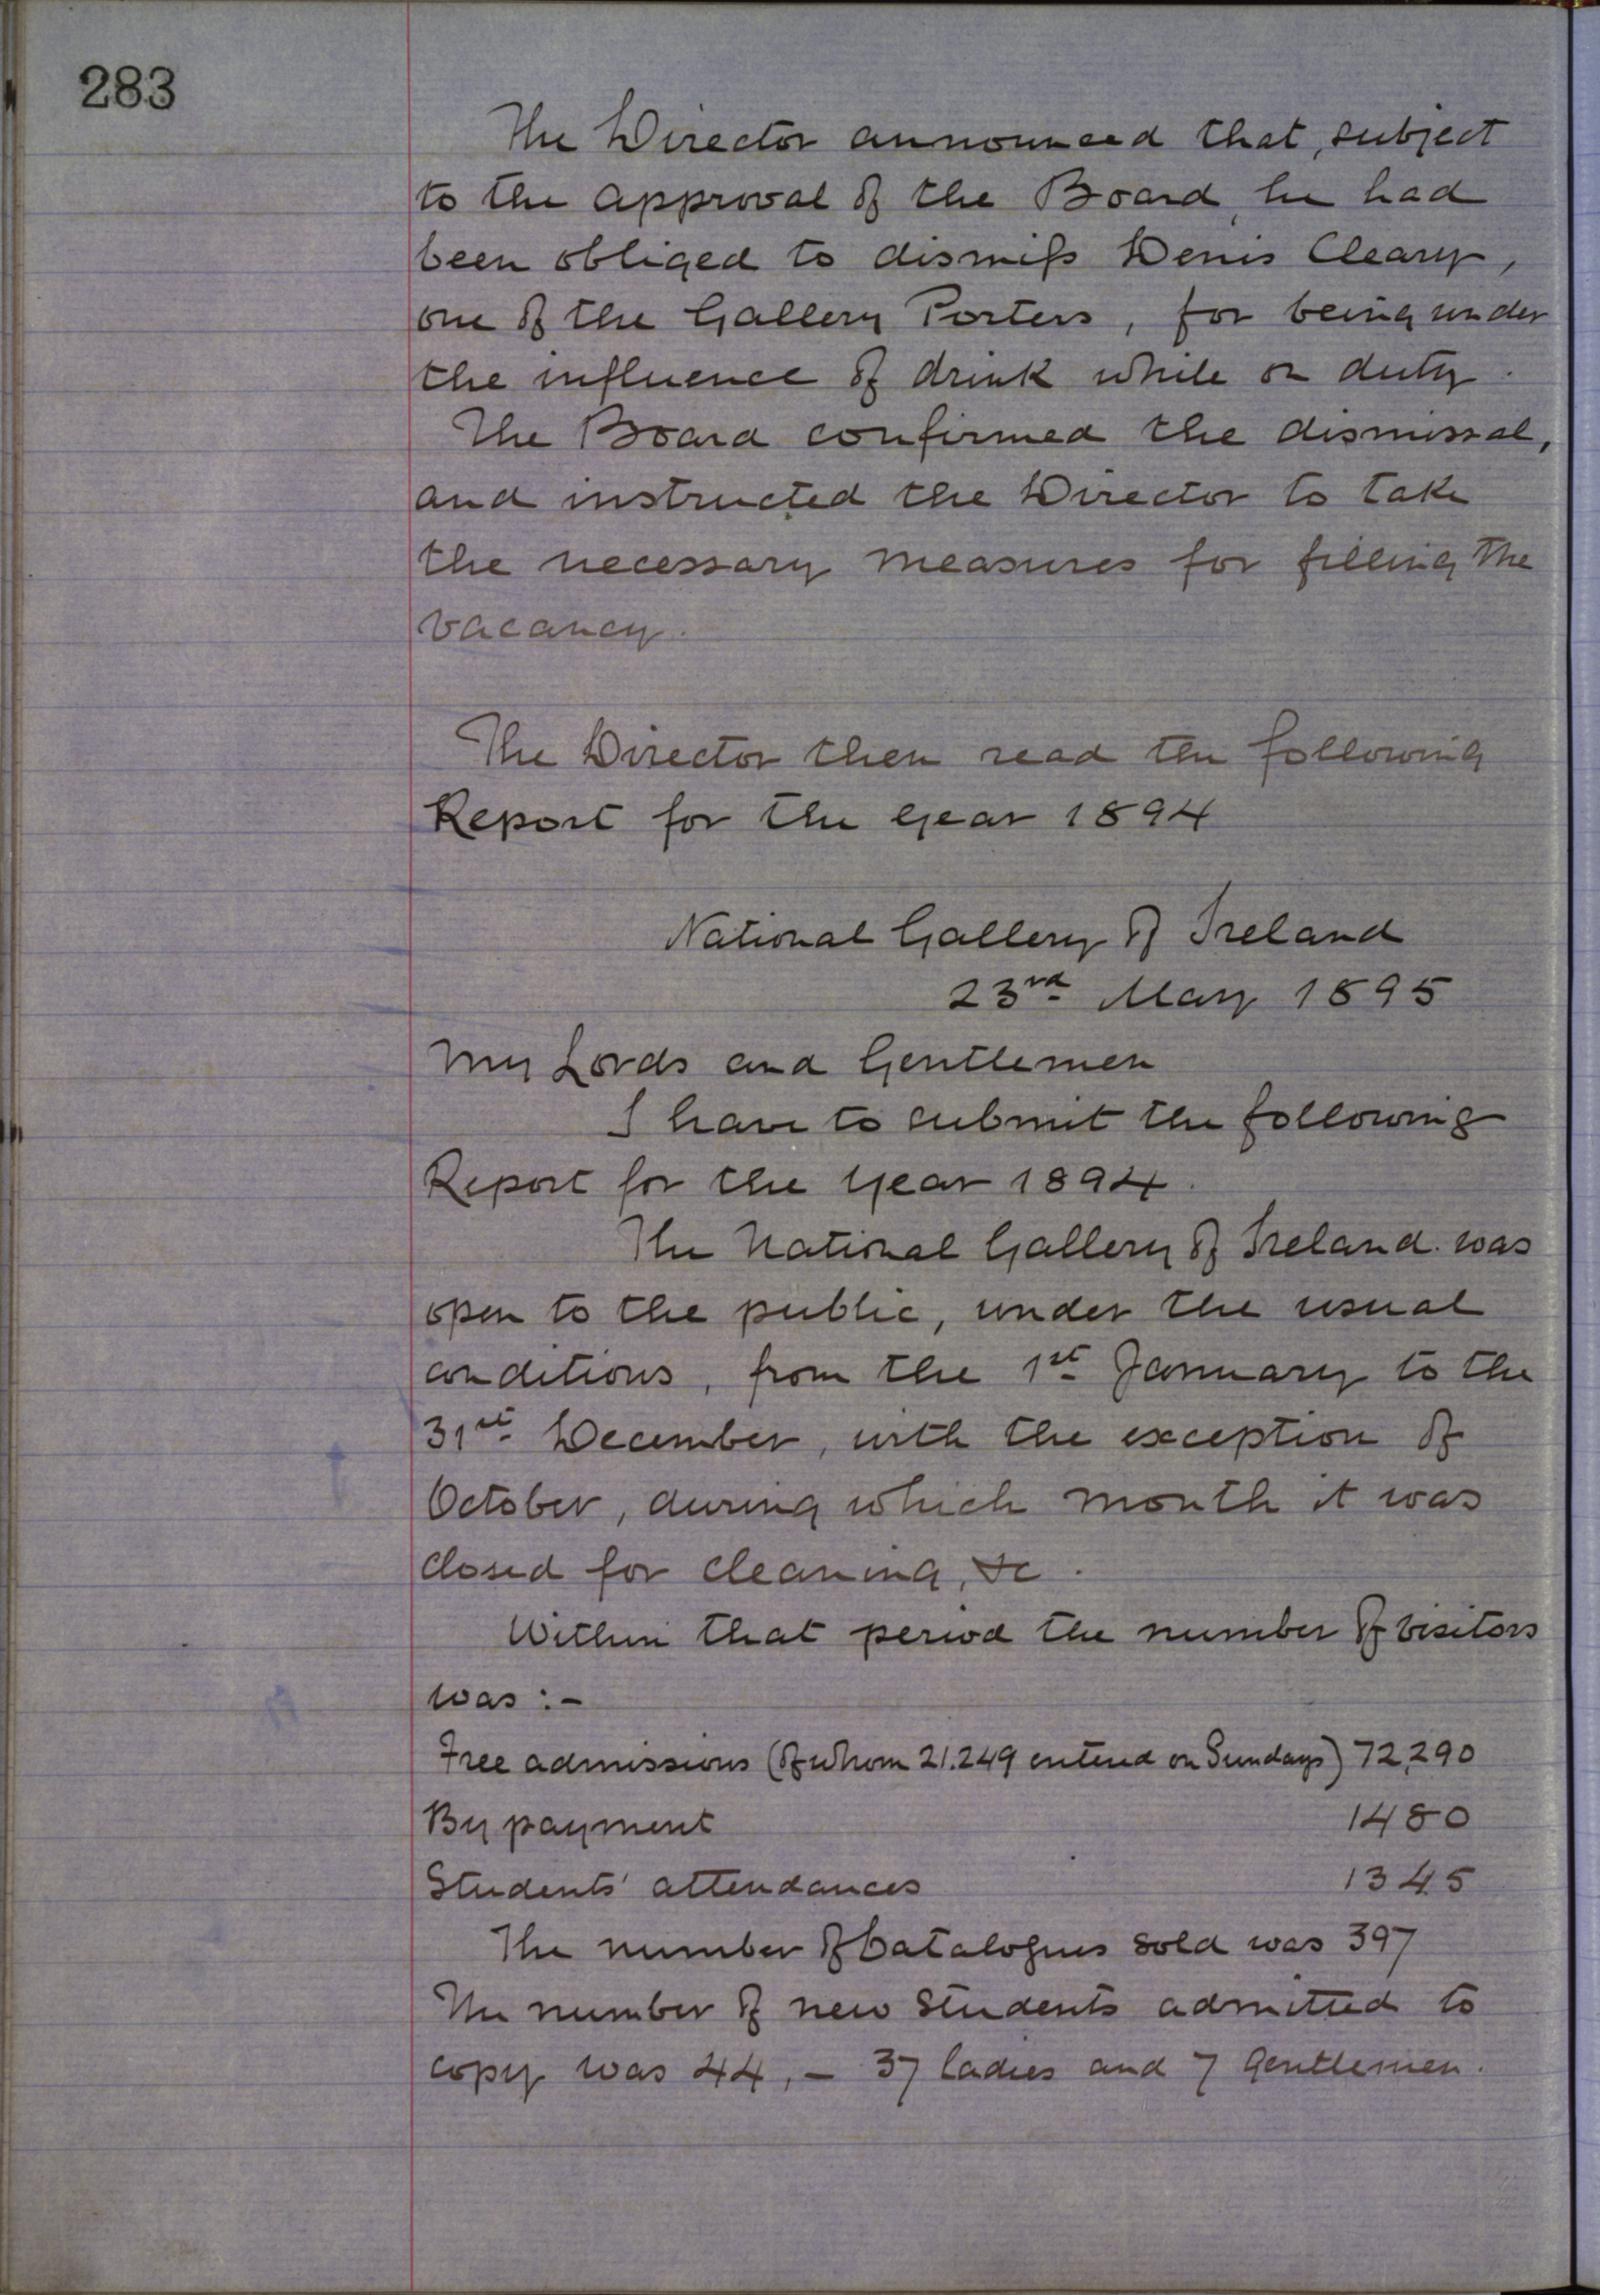 283
The Director announced that, subject
to the approval of the Board, he had
been obliged to dismiss Denis Cleary,
one of the Gallery Porters, for being under
the influence of drink while on duty.
The Board confirmed the dismissal,
and instructed the Director to take
the necessary measures for filling the
vacancy.
The Director then read the following
Report for the year 1894
National Gallery of Ireland
23rd May 1895
My Lords and Gentlemen
I have to submit the following
Report for the year 1894.
The National Gallery of Ireland was
open to the public, under the usual
conditions, from the 1st January to the
31st December, with the exception of
October, during which month it was
closed for cleaning, &c.
Within that period the number of visitors
was :-
Free admissions (of whom 21.249 entered on Sundays) 72,290
By payment 1480
Students' attendances 1345
The number of Catalogues sold was 397
The number of new Students admitted to
copy was 44, - 37 ladies and 7 gentlemen.